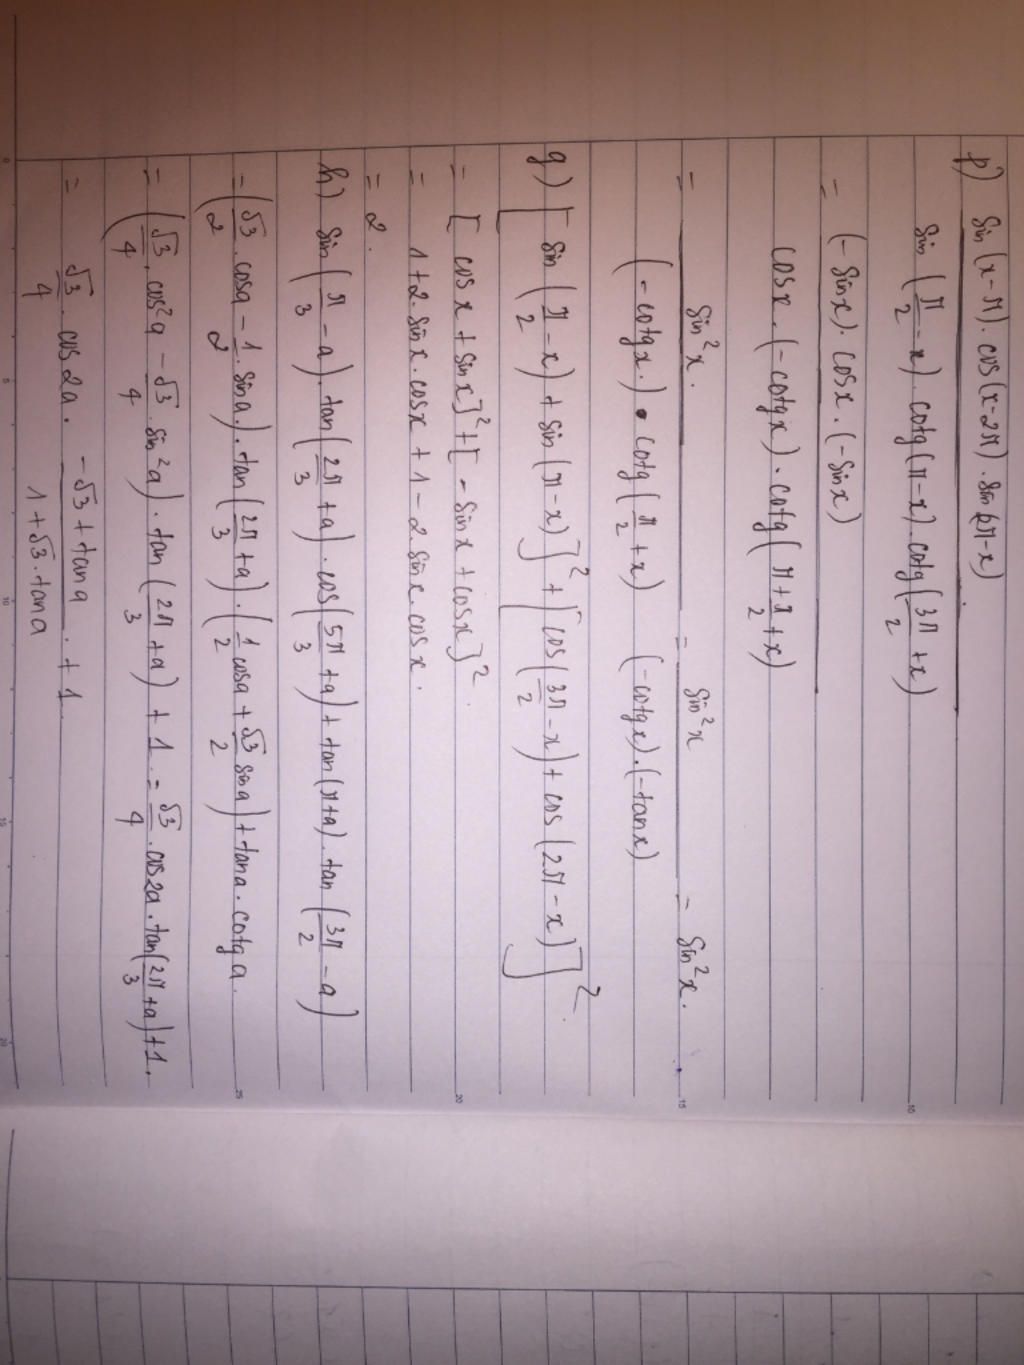 f) sin(x-π).cos(x-2π).sin(2π-x)
sin(π/2 - x).cotg(π-x).cotg(3π/2 + x)
= (-sinx).cosx.(-sinx)
cosx.(-cotgx).cotg(π+π/2+x)
= sin²x. = sin²x = sin²x.
(-cotgx.).cotg(π/2+x) (-cotgx).(-tanx)
g) [sin(π/2 - x) + sin(π-x)]² + [cos(3π/2 - x) + cos(2π-x)]².
= [cosx + sinx]² + [-sinx + cosx]².
= 1+2.sinx.cosx + 1 - 2 sinx.cosx.
= 2.
h) sin(π/3 - a).tan(2π/3 + a).cos(5π/3 + a) + tan(π+a).tan(3π/2 - a)
= (√3/2.cosa - 1/2.sina).tan(2π/3 + a).(1/2 cosa + √3/2 sina) + tana.cotga.
= (√3/4.cos²a - √3/4.sin²a).tan(2π/3 + a) + 1 = √3/4.cos2a.tan(2π/3 + a) + 1.
= √3/4.cos2a. -√3 + tana / 1+√3.tana . + 1.
0
5
10
15
20
10
15
20
25